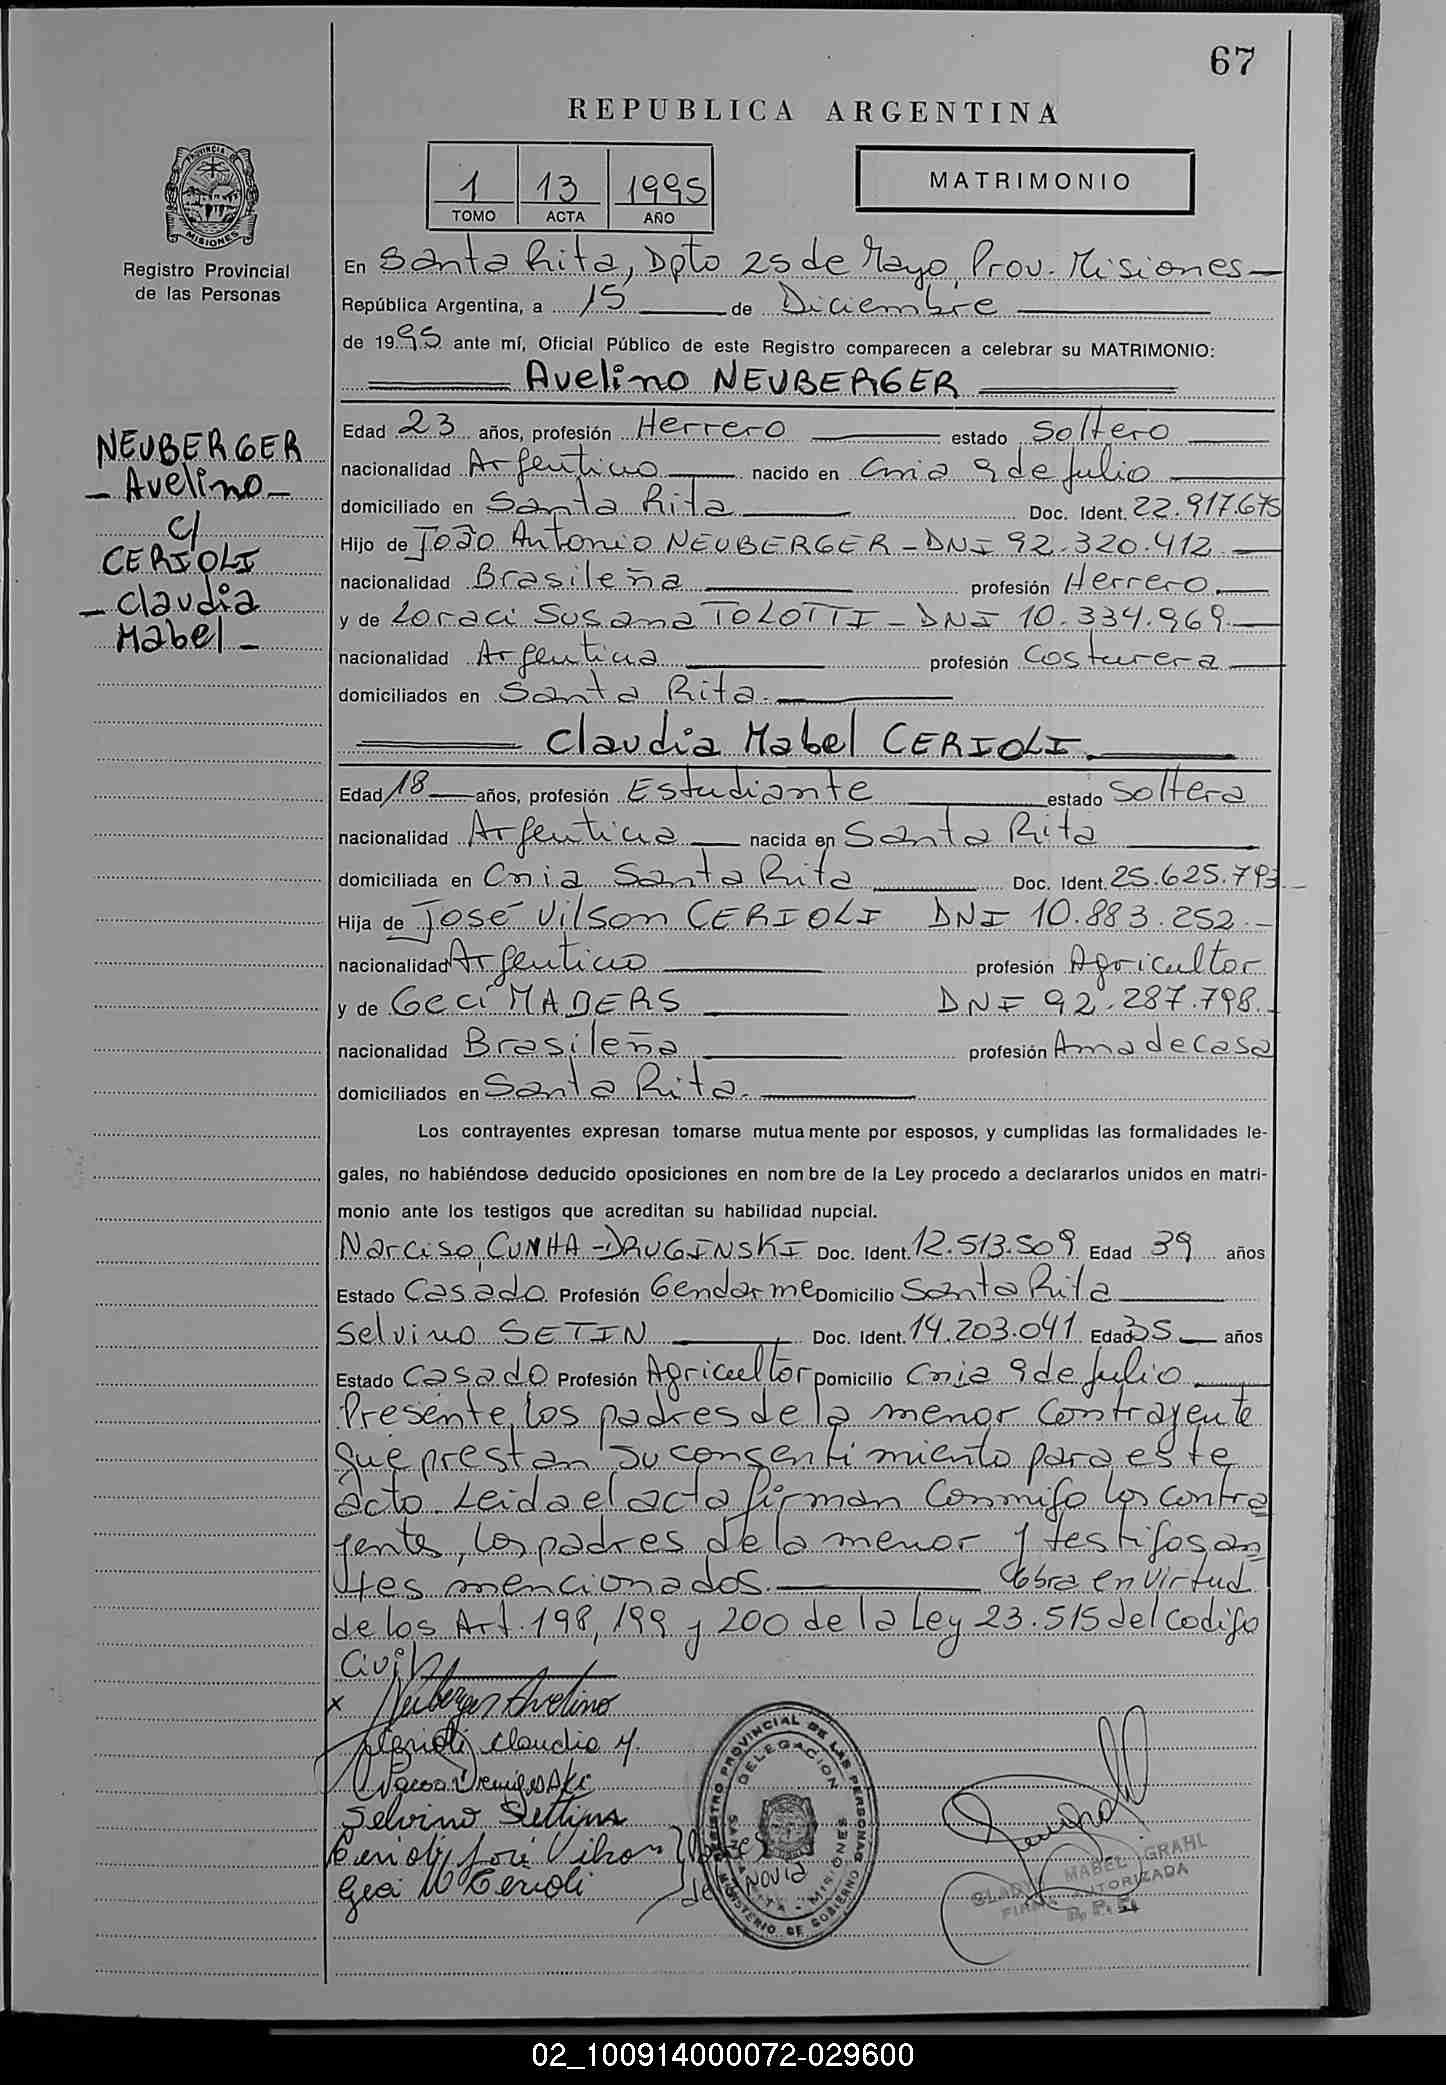 67
REPUBLICA ARGENTINA
1 13 1995
TOMO ACTA AÑO
MATRIMONIO
PROVINCIA DE
MISIONES
Registro Provincial
de las Personas
En Santa Rita, Dpto 25 de Mayo, Prov. Misiones
República Argentina, a 15 de Diciembre
de 1995 ante mí, Oficial Público de este Registro comparecen a celebrar su MATRIMONIO:
Avelino NEUBERGER
NEUBERGER
- Avelino -
c/
CERIOLI
- Claudia
Mabel -
Edad 23 años, profesión Herrero estado Soltero
nacionalidad Argentino nacido en Cnia 9 de Julio
domiciliado en Santa Rita Doc. Ident. 22.917.675
Hijo de João Antonio NEUBERGER - DNI 92.320.412
nacionalidad Brasileña profesión Herrero.
y de Loraci Susana TOLOTTI - DNI 10.334.969.
nacionalidad Argentina profesión Costurera
domiciliados en Santa Rita.
Claudia Mabel CERIOLI.
Edad 18 años, profesión Estudiante estado Soltera
nacionalidad Argentina nacida en Santa Rita
domiciliada en Cnia Santa Rita Doc. Ident. 25.625.793
Hija de José Vilson CERIOLI DNI 10.883.252.-
nacionalidad Argentino profesión Agricultor
y de Geci MADERS DNI 92.287.798.
nacionalidad Brasileña profesión Ama de casa
domiciliados en Santa Rita.
Los contrayentes expresan tomarse mutuamente por esposos, y cumplidas las formalidades le-
gales, no habiéndose deducido oposiciones en nombre de la Ley procedo a declararlos unidos en matri-
monio ante los testigos que acreditan su habilidad nupcial.
Narciso CUNHA-DRUGINSKI Doc. Ident. 12.513.509 Edad 39 años
Estado Casado Profesión Gendarme Domicilio Santa Rita
Selvino SETIN Doc. Ident. 14.203.041 Edad 35 años
Estado Casado Profesión Agricultor Domicilio Cnia 9 de Julio
Presente los padres de la menor contrayente
que prestan su consentimiento para este
acto. Leida el acta firman conmigo los contra
yentes, los padres de la menor y testigos an
tes mencionados. Obra en virtud
de los Art. 198, 199 y 200 de la Ley 23.515 del Codigo
Civil
x Neuberger Avelino
Cerioli Claudia M.
Selvino Settin
Cerioli José Vilson
Geci M Cerioli
de Novia
REGISTRO PROVINCIAL DE LAS PERSONAS
DELEGACION
SANTA RITA - MISIONES
MINISTERIO DE GOBIERNO
MABEL GRAHL
FIRMA AUTORIZADA
02_100914000072-029600